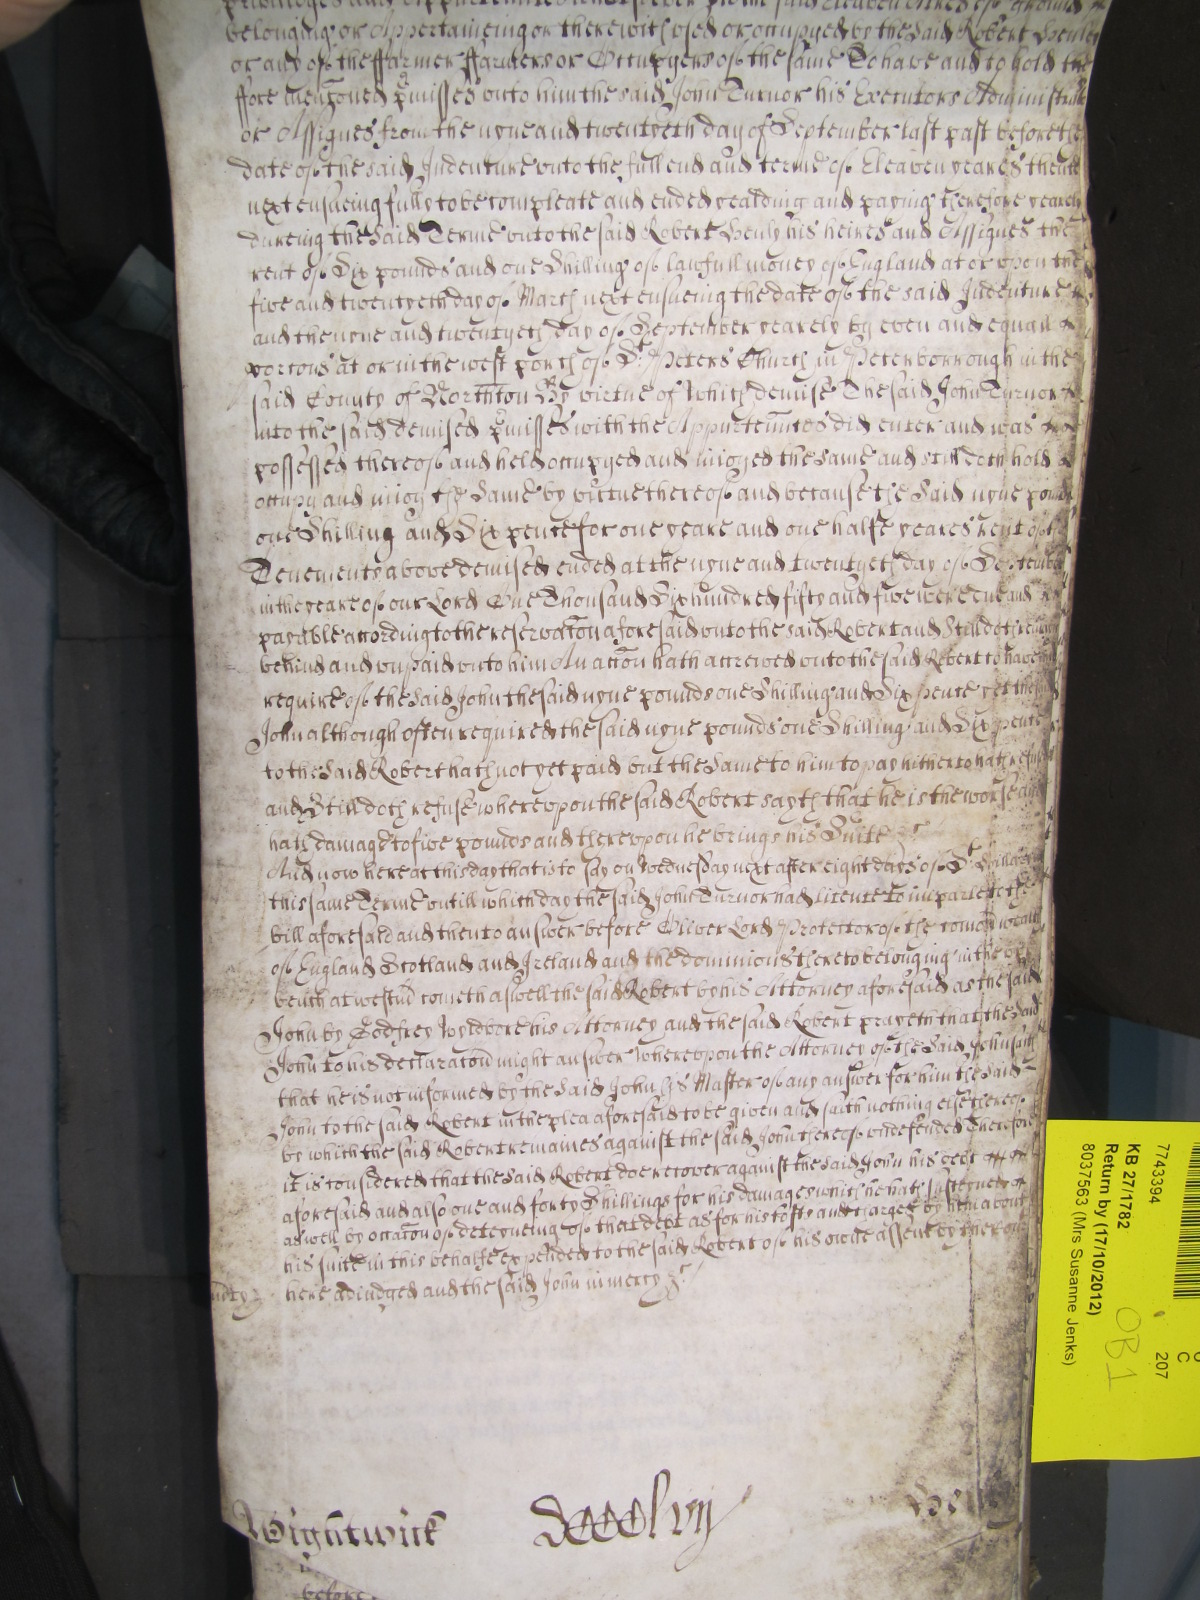 priviledges and Appurtennces whatsoever to the said Eleaven Acres of ground
belonging or Appertaineing or therewith vsed or occupyed by the said Robert Henley
or any of the ffarmer ffarmers or Occupyers of the same To have and to hold the
fore menconed pmisses vnto him the said John Turnor his Executors Administrat
or Assignes from the nyne and twentyeth day of September last past before the
date of the said Indenture vnto the full end and terme of Eleaven yeares thence
next ensueing fully to be compleate and ended yealding and paying therefore yearely
dureing the said Terme vnto the said Robert Henly his heires and Assignes the
rent of Six pounds and one Shilling of lawfull money of England at or vpon the
five and twentyeth day of March next ensueing the date of the said Indenture
and the nyne and twentyeth day of September yearely by even and equall
porcons at or in the west porch of St Peters Church in Peterborrough in the
said County of Northton By virtue of which demise The said John Turnor
into the said demised pmisses with the Appurtennces did enter and was
possessed thereof and held occupyed and inioyed the same and still doth hold
occupy and inioy the same by virtue thereof and because the said nyne pounds
one Shilling and Six pence for one yeare and one halfe yeares rent of the
Tenements above demised ended at the nyne and twentyeth day of September
in the yeare of our Lord One Thousand Six hundred fifty and five were due and
payable according to the reservacon aforesaid vnto the said Robert and Still doth remaine
behind and vnpaid vnto him An accon hath accrewed vnto the said Robert to have and
require of the said John the said nyne pounds one Shilling and Six pence yet the said
John although often required the said nyne pounds one Shilling and Six pence
to the said Robert hath not yet paid but the same to him to pay hitherto hath refused
and Still doth refuse wherevpon the said Robert sayth that he is the worse and
hath damage to five pounds and therevpon he brings his Suite &c
And now here at this day that is to say on Wednesday next after eight dayes of St Hillary
this same Terme vntill which day the said John Turnor had licence to imparle to the
bill aforesaid and then to answer before Oliver Lord Protector of the comonwealth
of England Scotland and Ireland and the dominions thereto belonging in the vpper
bench at westmr cometh aswell the said Robert by his Attorney aforesaid as the said
John by Godfrey Wyldbore his Attorney and the said Robert prayeth that the said
John to his declaracon might answer Wherevpon the Attorney of the said John saith
that he is not informed by the said John his Master of any answer for him the said
John to the said Robert in the plea aforesaid to be given and saith nothing else thereof
by which the said Robert remaines against the said John thereof vndefended Therefore
it is considered that the said Robert doe recover against the said John his debt
aforesaid and also one and forty Shillings for his damages which he hath susteyned
aswell by occacon of deteyneing of that debt as for his costs and charges by him about
his suite in this behalfe expended to the said Robert of his owne assent by the court
here adiudged and the said John in mercy &c
mcy
Wightwick
dccclvij
before
7743394
KB 27/1782
Return by (17/10/2012)
8037563 (Mrs Susanne Jenks)
OB 1
C
207